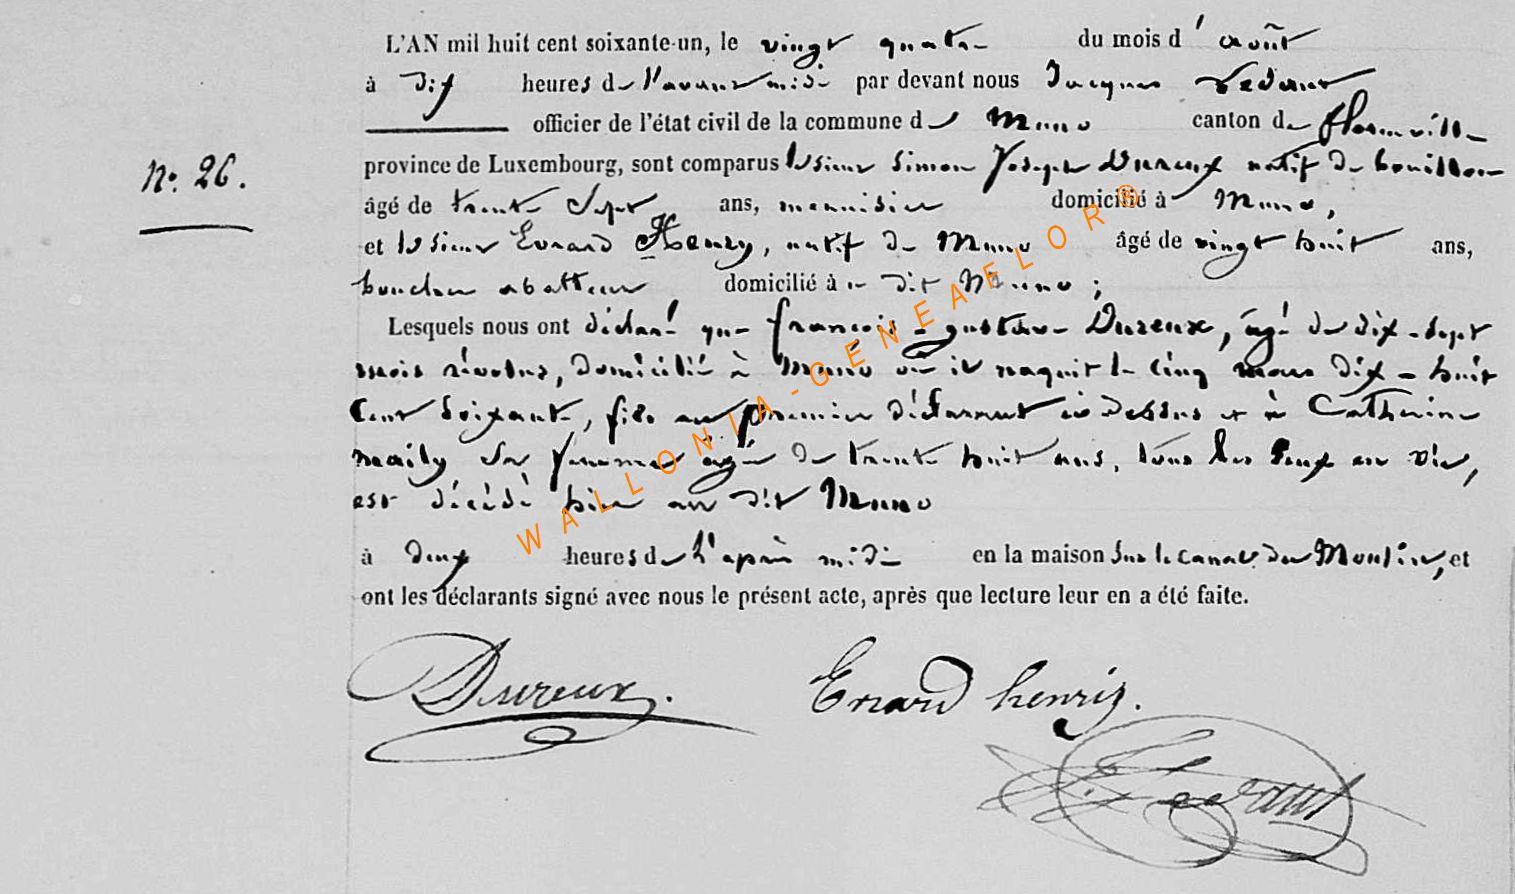 L'AN mil huit cent soixante-un, le vingt quatre du mois d'août
à dix heures de l'avant midi par devant nous Jacques
officier de l'état civil de la commune de Muno canton de Florenville
N°. 26.
province de Luxembourg, sont comparus le sieur Simon Joseph Dureux natif de bouillon
âgé de trente sept ans, menuisier domicilié à Muno,
et le sieur Evrard Henry, natif de Muno âgé de vingt huit ans,
domicilié à dit Muno ;
Lesquels nous ont déclaré que françois-gustave Dureux, âgé de dix-sept
mois révolus, domicilié à Muno où il naquit le cinq mars dix-huit
cent soixante, fils au premier déclarant ci dessus et à Catherine
sa femme âgée de trente huit ans, tous les deux en vie,
est décédé hier au dit Muno
à deux heures de l'après midi en la maison sur le canal du Moulin, et
ont les déclarants signé avec nous le présent acte, après que lecture leur en a été faite.
Dureux.
Evrard henry.
WALLONIA-GENEAELOR®